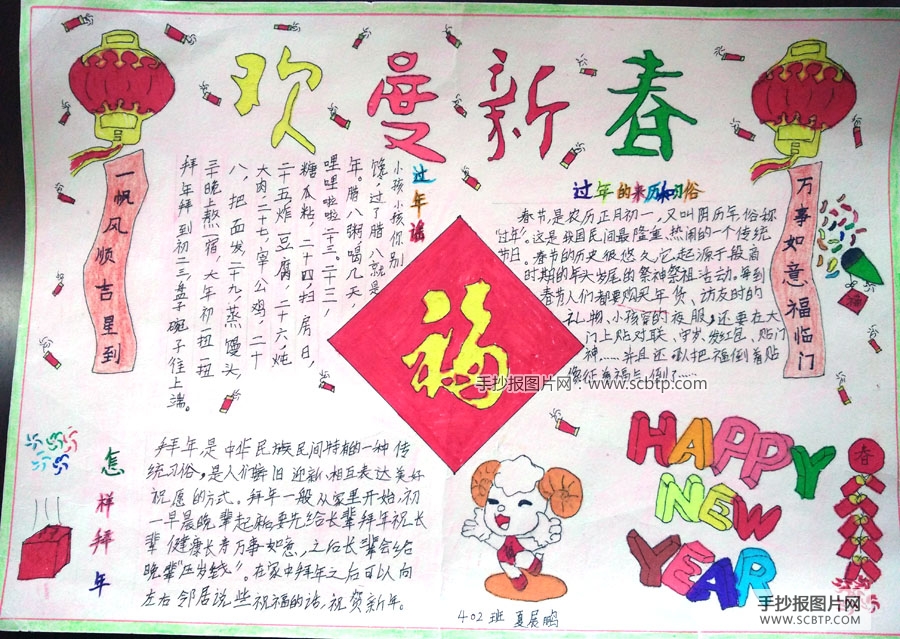 欢度新春
一帆风顺吉星到
万事如意福临门
过年谣
小孩小孩你别
馋，过了腊八就是
年。腊八粥，喝几天，
哩哩啦啦二十三，二十三，
糖瓜粘，二十四，扫房日，
二十五，炸豆腐，二十六，炖
大肉，二十七，宰公鸡，二十
八，把面发，二十九，蒸馒头，
三十晚上熬一宿，大年初一扭一扭
拜年拜到初二三，盘子碗子往上端。
过年的来历和习俗
春节是农历正月初一，又叫阴历年，俗称
“过年”。这是我国民间最隆重、热闹的一个传统
节日。春节的历史很悠久，它起源于殷商
时期的年头岁尾的祭神祭祖活动。每到
春节人们都要购买年货、访友时的
礼物、小孩穿的衣服，还要在大
门上贴对联、守岁、发红包、贴门
神……并且还
把福倒着贴
像征着福
福
春
福
怎样拜年
拜年是中华民族民间特有的一种传
统习俗，是人们辞旧迎新、相互表达美好
祝愿的方式。拜年一般从家里开始，初
一早晨晚辈起
要先给长辈拜年祝长
辈健康长寿万事如意，之后长辈会给
晚辈“压岁钱”。在家中拜年之后可以向
左右邻居说些祝福的话，祝贺新年。
HAPPY
NEW
YEAR
402班 夏展鹏
手抄报图片网：www.scbtp.com
手抄报图片网
WWW.SCBTP.COM